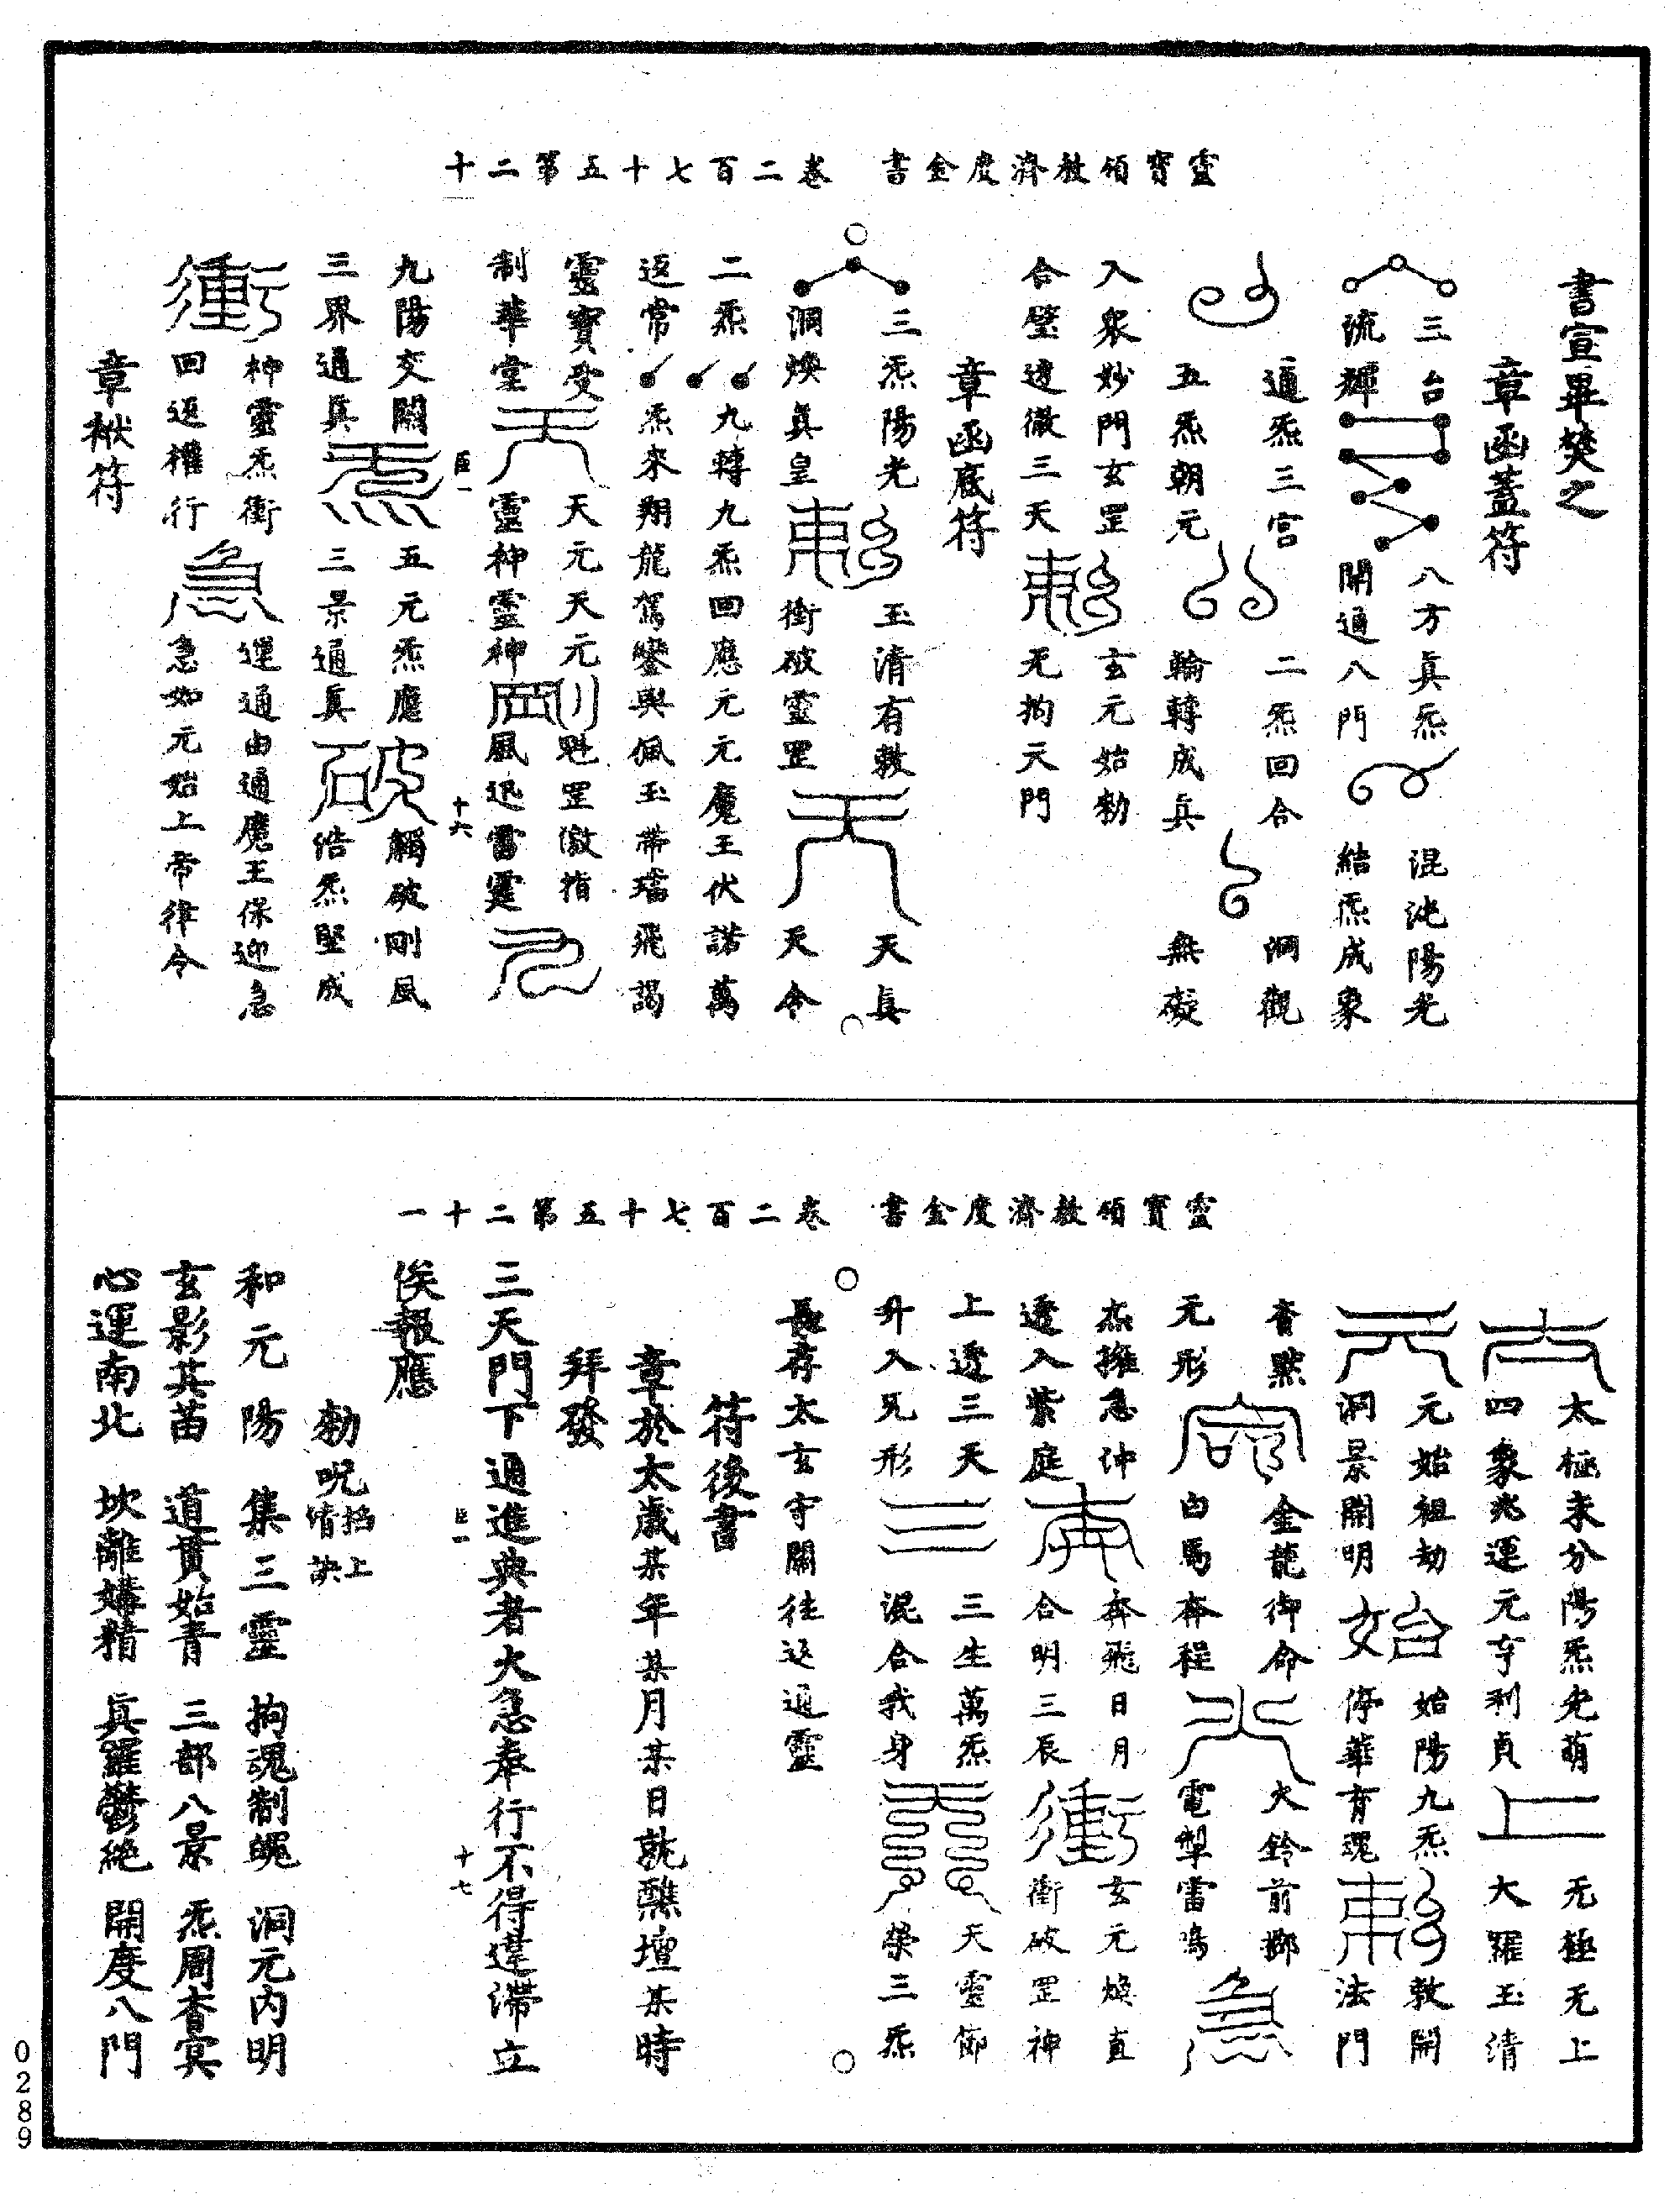 靈寶領教濟度金書　卷二百七十五第二十
書宣畢焚之
章函蓋符
三台
流輝
八方真炁
開通八門
混沌陽光
結炁成象
通炁三宮
五炁朝元
二炁回合
輪轉成真
洞觀
無礙
入衆妙門玄罡
合璧遶徹三天
玄元始勑
无拘天門
章函底符
三炁陽光
洞煥真皇
玉清有敕
衝破靈罡
天真
天令
二炁九轉九炁回應元元魔王伏諾萬
返常炁來翔龍駕鑾輿佩玉帶璫飛謁
靈寶受
制華堂
天元天元
靈神靈神
魁罡激指
風迅雷霆
臣一
十六
九陽交關
三界通真
五元炁應
三景通真
觸破剛風
浩炁堅成
神靈炁衝
回返權行
運通由通魔王保迎急
急如元始上帝律令
章袱符
靈寶領教濟度金書　卷二百七十五第二十一
太極未分陽炁光萌
四象兆運元亨利貞
无極无上
大羅玉清
元始祖劫
洞景開明
始陽九炁
停華育魂
敕開
法門
杳默
元形
金龍御命
白馬奔程
火鈴前擲
電掣雷鳴
杰擁急沖
遼入紫庭
奔飛日月
合明三辰
玄元煥直
衝破罡神
上透三天
升入兄形
三生萬炁
混合我身
天靈節
榮三炁
長存太玄守關往返通靈
符後書
章於太歲某年某月某日就醮壇某時
拜發
三天門下通進典者火急奉行不得違滯立
臣一
十七
俟報應
勑呪掐上
清訣
和元陽　集三靈　拘魂制魄　洞元內明
玄影其苗　道貫始青　三部八景　炁周杳冥
心運南北　坎離媾精　真羅鬱絕　開度八門
0289